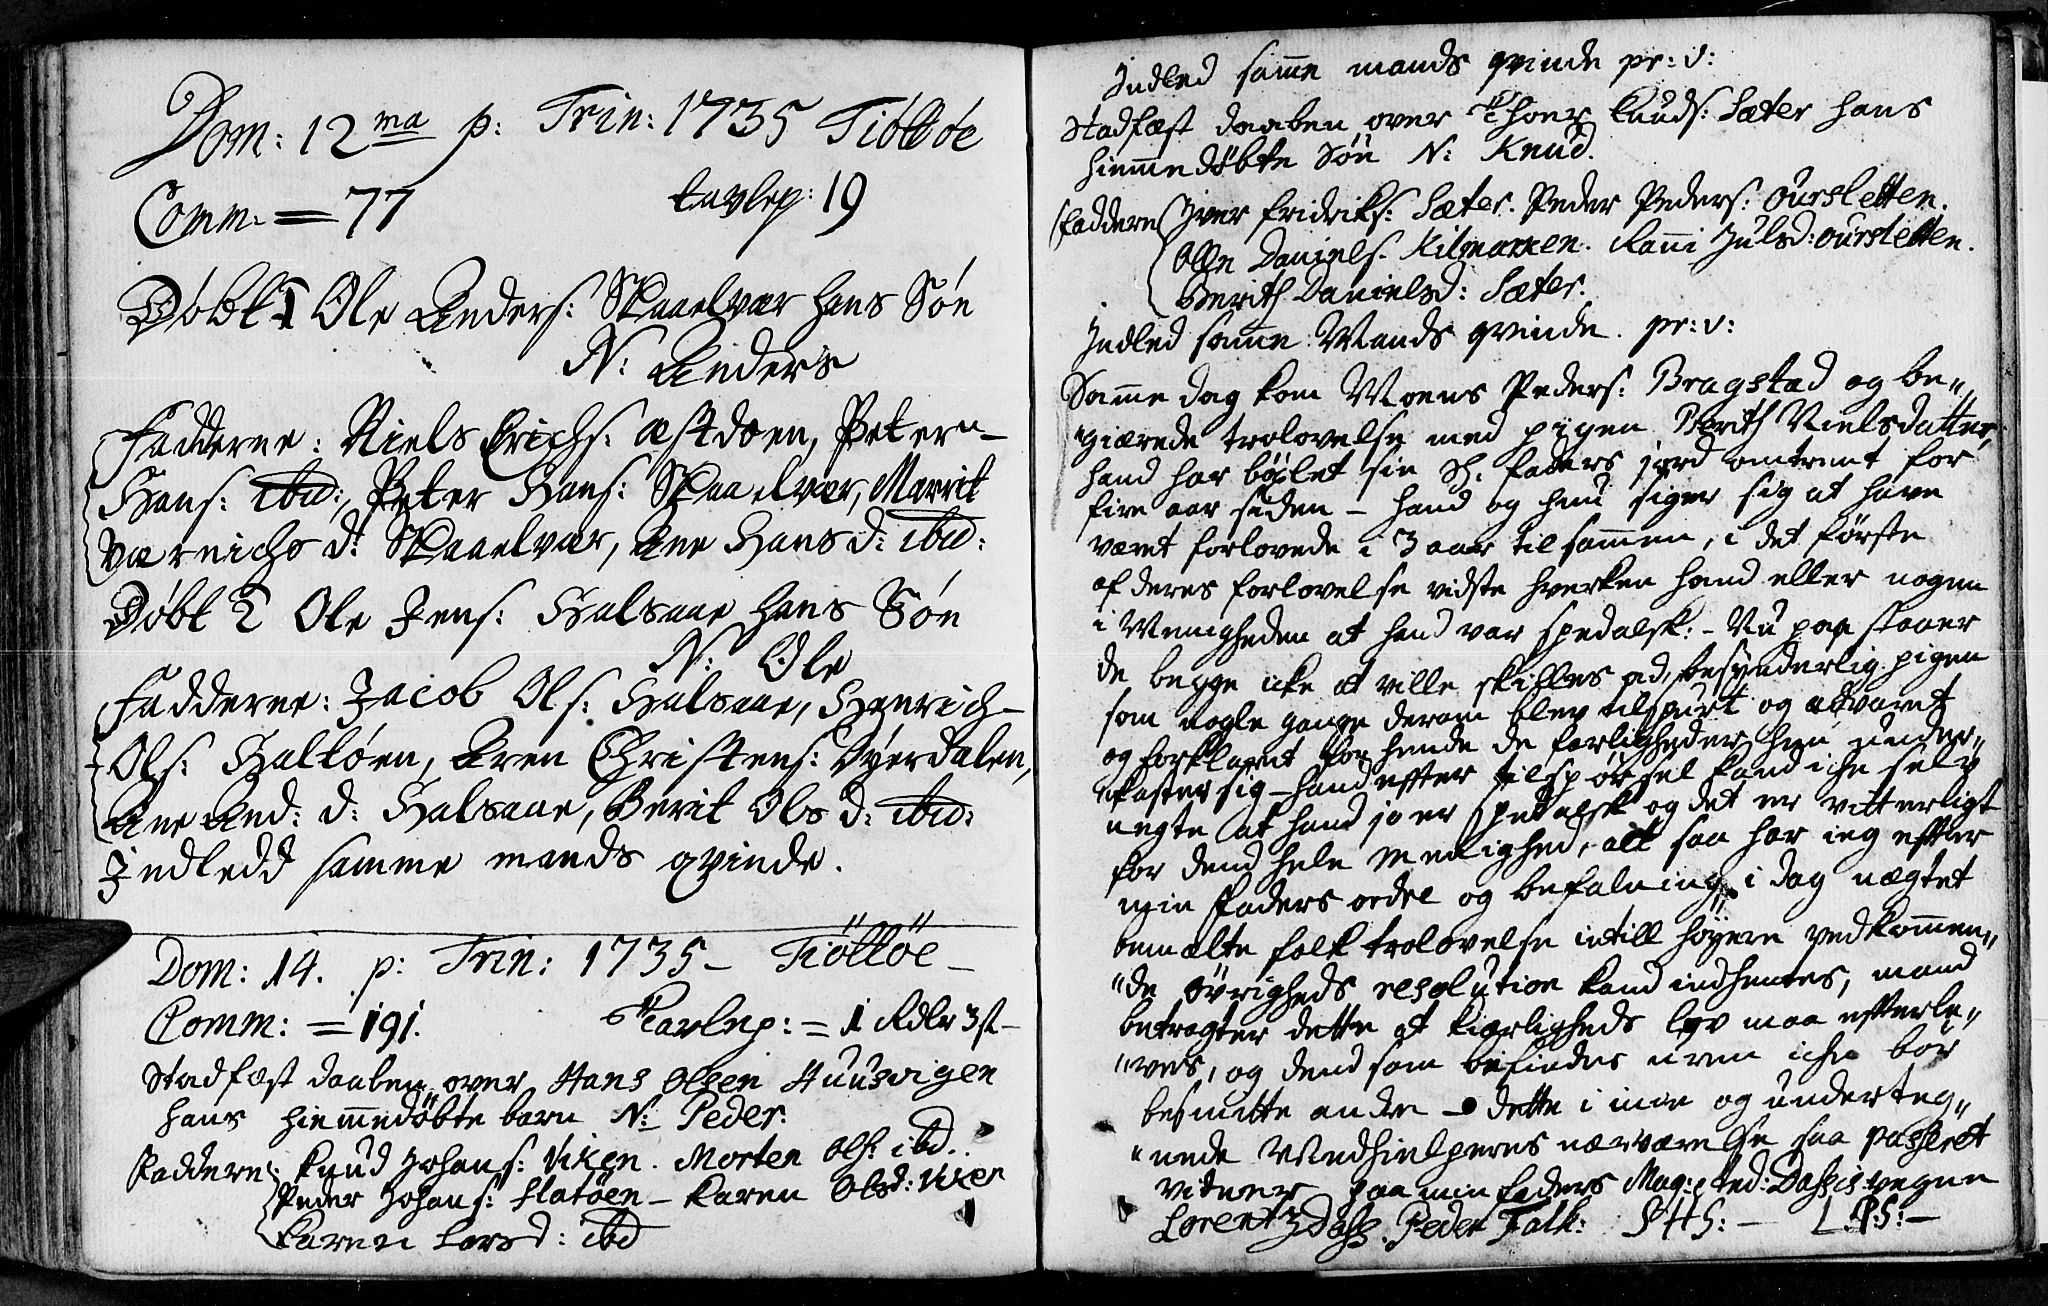 Dom: 12 ma p: Trin: 1735 Tiøttøe
Comm: = 77 tavlep: 19
Døbt 1 Ole Anders: Skaaelvær hans Søn
N: Anders
Fadderne: Niels Erichs: æstdøen, Peter
Hans: ibid:, Peter Hans: Skaaelvær, Marrit
Værnichs d: Skaaelvær, Ane Hans d: ibid:
Døbt 2 Ole Jens: Halsaae hans Søn
N: Ole
Fadderne: Jacob Ols: Halsaae, Henrich
Ols: Haltøen, Aren Christens: Dyerdalen,
Ane And: d: Halsaae, Berit Ols d: ibid:
Indledd samme mands qvinde.
Dom: 14. p: Trin: 1735 – Tiøttøe –
Comm: = 191. Tavlep: = 1 Rdlr 3 st –
Stadfæst daaben over Hans Olsen Huusvigen
hans hiemmedøbte barn N: Peder.
Faddere: Knud Johans: Viken. Morten Ols: ibd.
Peder Johans: Slatøen – Karen Olsd: Viken
Karen Larsd: ibd
Indled samme mands qvinde pr: v:
Stadfæst daaben over Thoer Knuds: Sæter hans
hiemmedøbte Søn N: Knud.
Faddere Iver Fridriks: Sæter. Peder Peders: Oursletten.
Olle Daniels: Kilmarken. Ranni Julsd: Oursletten.
Berith Danielsd: Sæter.
Indled samme Mands qvinde. pr: v:
Samme dag kom Moens Peders: Bragstad og be„
giærede trolovelse med pigen Berith Nielsdatter,
hand har bøxlet sin Sl. faders jord omtrent for
fire aar siden – hand og hun siger sig at have
været forlovede i 3 aar tilsammen, i det første
af deres forlovelse vidste hverken hand eller nogen
i Menigheden at hand var spedalsk: – Nu paa staaer
de begge icke at ville skilles ad, besynderlig pigen
som nogle gange derom blev tilspurt og advaret
og forklaret for hende de farligheder hun under„
kaster sig – hand effter tilspørsel kand icke selv
negte at hand jo er spedalsk og det er vitterligt
for dend hele Menighed, alt saa har ieg effter
min Faders ordre og befalning i dag nægtet
bemælte folk trolovelse intill høyere vedkommen„
„de øvrigheds resolution kand indhentes, mand
betragter dette at kierligheds lov maa efterle„
„ves, og dend som befindes ureen iche bør
besmitte andre – dette i min og underteg„
„nede Medhielperes nærværelse saa passeret
vidner paa min faders Mag: Pet: Dasses vegne
Lorentz Dass. Peder Falk: S H S: – L. P. S: –